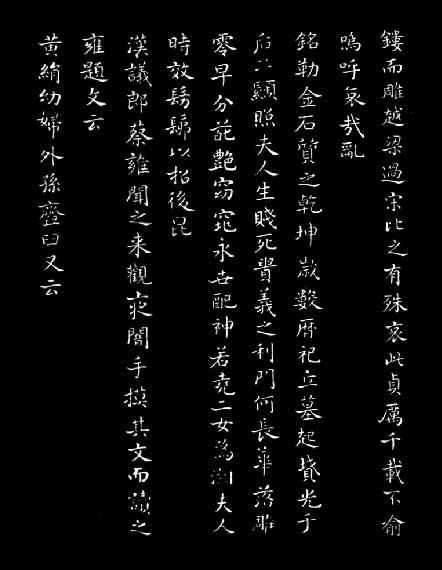 鏤而雕越梁過宋比之有殊哀此貞厲千載不渝
嗚呼哀哉亂
銘勒金石質之乾坤歲數厤祀立墓起墳光于
后土顯照夫人生賤死貴義之利門何長華落雕
零早分葩艷窈窕永世配神若堯二女為湘夫人
時效髣髴以招後昆
漢議郎蔡雍聞之来觀夜闇手摸其文而讀之
雍題文云
黃絹幼婦外孫齏臼又云